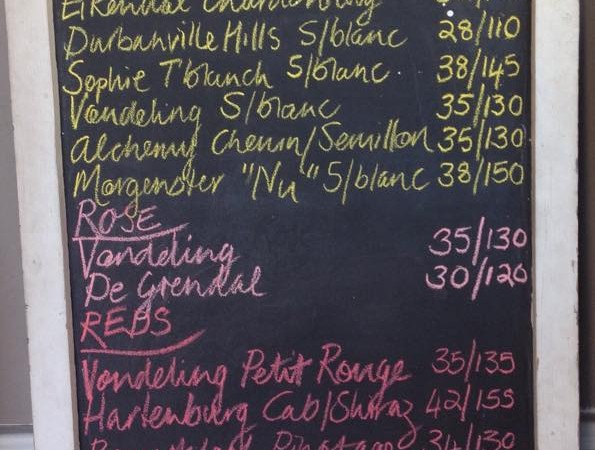 Eikendal Chardonnay
Durbanville Hills S/blanc 28/110
Sophie T'blanch S/blanc 38/145
Vondeling S/blanc 35/130
Alchemy Chenin/Semillon 35/130
Morgenster "Nu" S/blanc 38/150
ROSE
Vondeling 35/130
De Grendal 30/120
REDS
Vondeling Petit Rouge 35/135
Hartenburg Cab/Shiraz 42/155
Pinotage 34/130